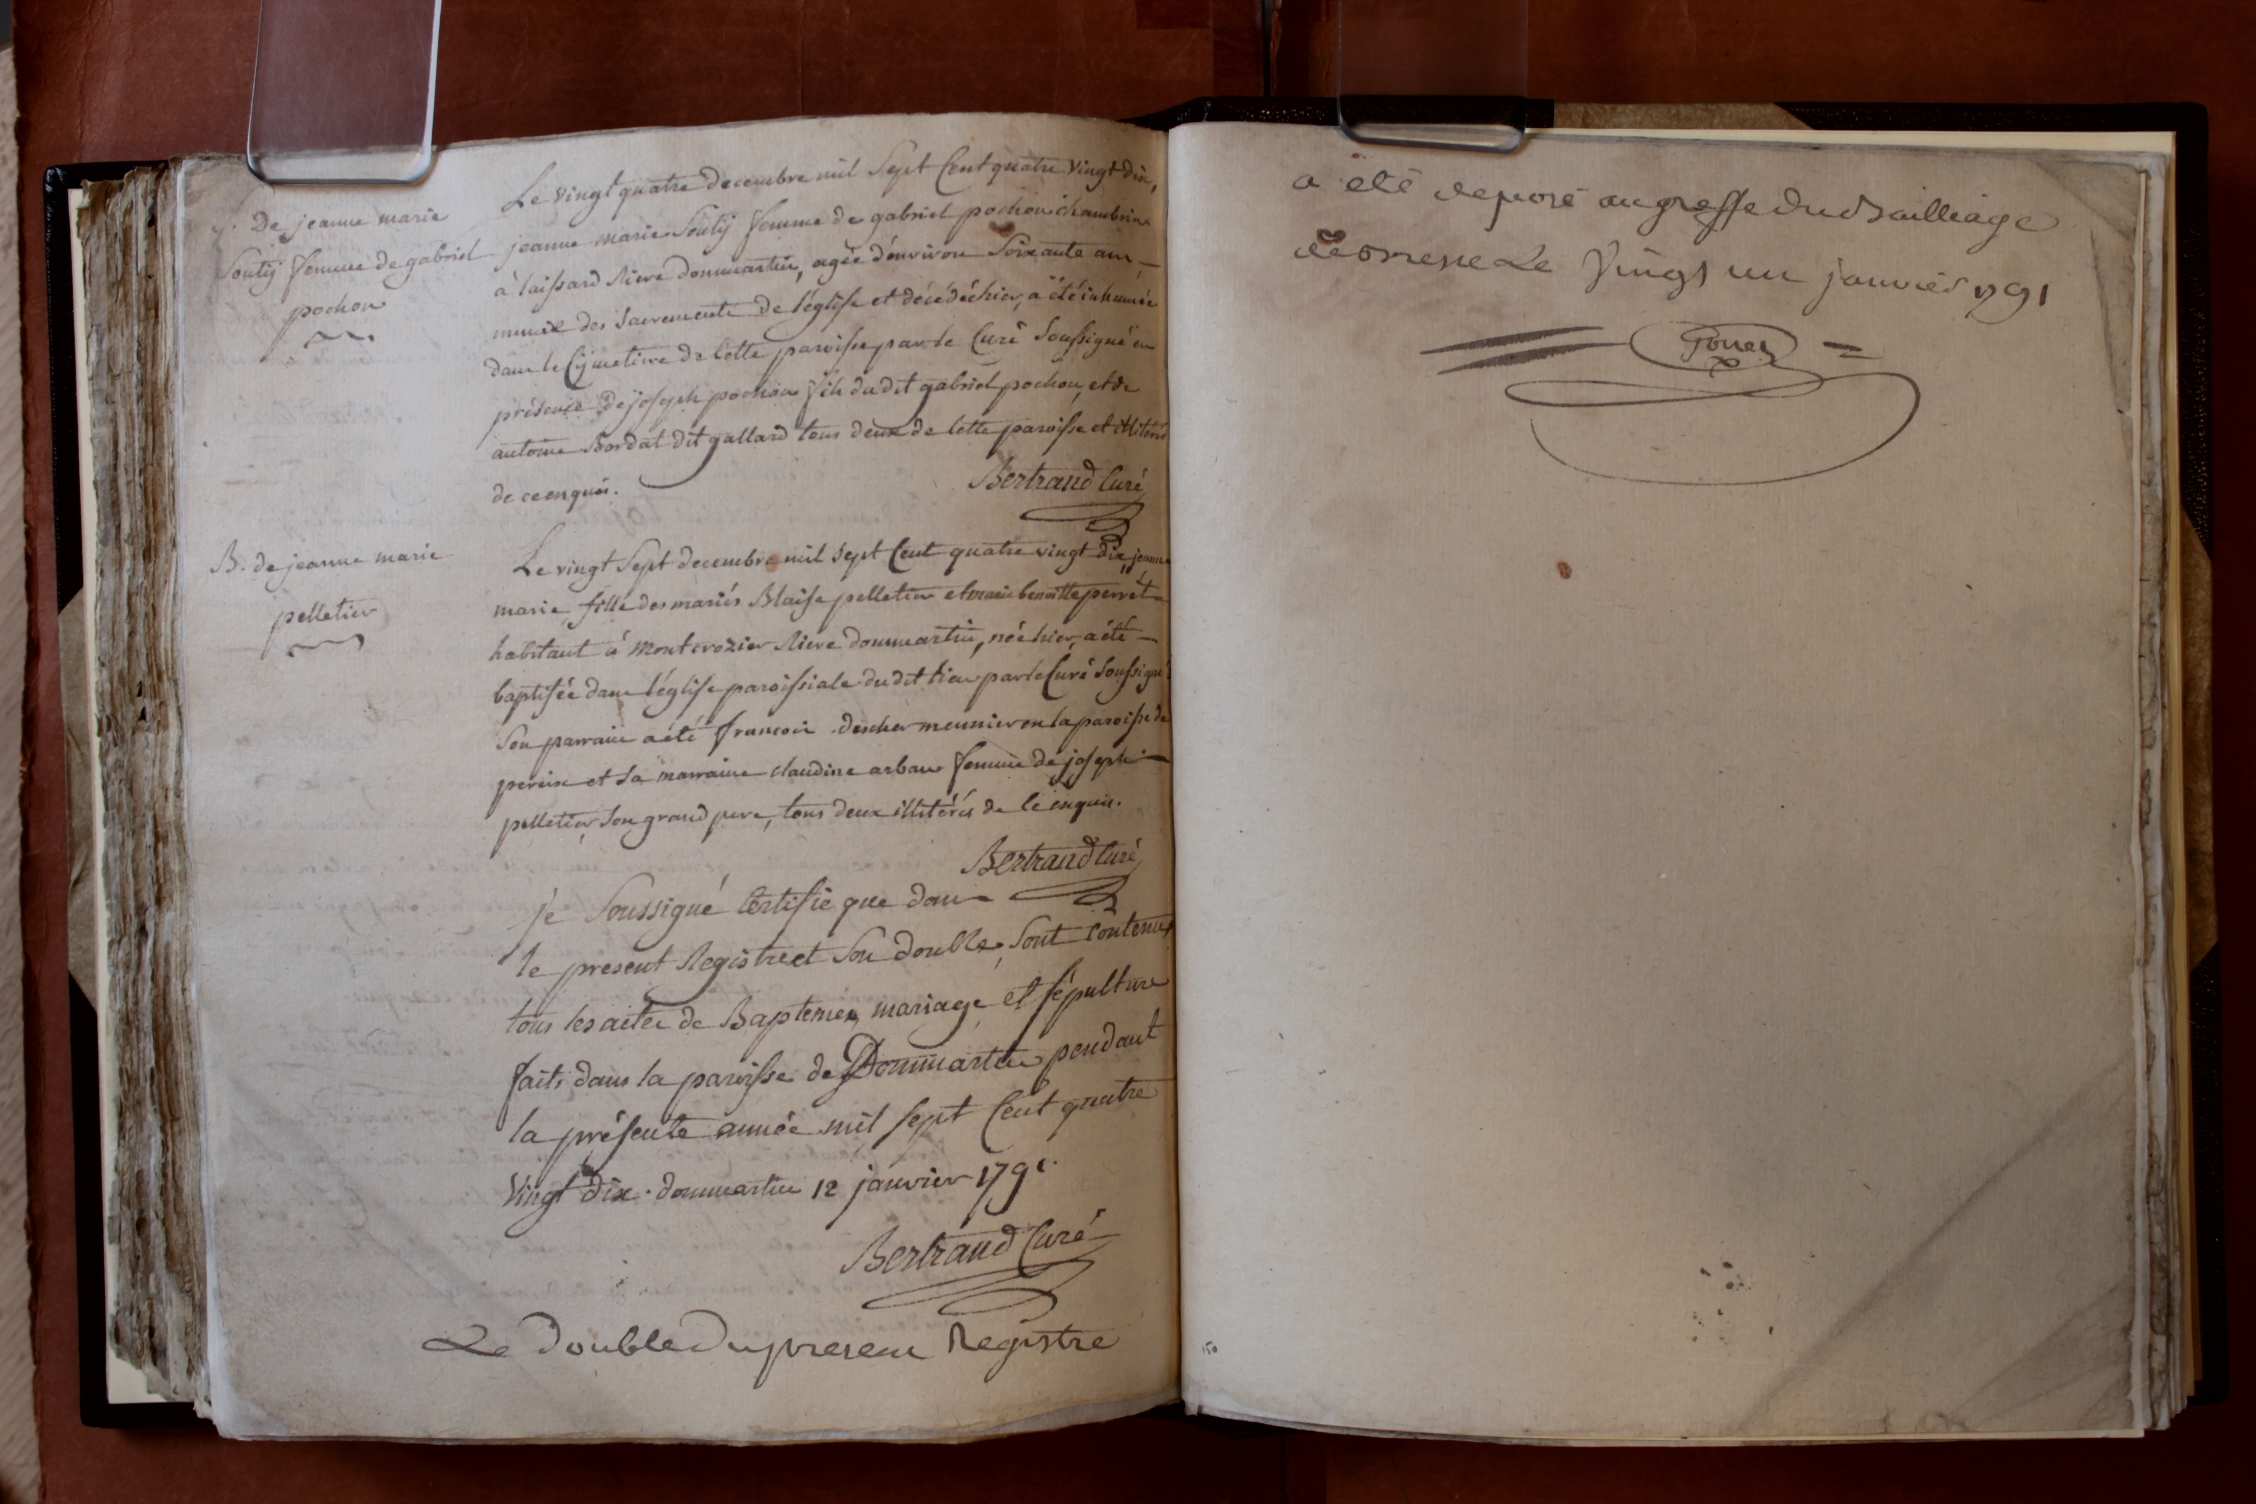 De jeanne marie
Soutij femme de gabriel
pochon
Le vingt quatre decembre mil Sept Cent quatre vingt dix,
jeanne marie Soutij femme de gabriel pochon
à laissard Riere dommartin, agée d'environ Soixante ans
munie des Sacrements de l'église et décédée hier, a été inhumée
dans le Cymetiere de Cette paroisse par le Curé Soussigné en
présence de joseph pochon fils du dit gabriel pochon, et de
antoine Bordat dit gallard tous deux de Cette paroisse et illiterés
de ce enquis.
Bertrand Curé
B. de jeanne marie
pelletier
Le vingt Sept decembre mil Sept Cent quatre vingt dix, jeanne
marie, fille des mariés Blaise pelletier et marie benoitte perret
habitant à montcrozier Riere dommartin, née hier, a été
baptisée dans l'église paroissiale du dit lieu par le Curé Soussigné
Son parrain a été francois descher meunier en la paroisse de
pereix et Sa marraine claudine arban femme de joseph
pelletier Son grand pere, tous deux illitérés de Ce enquis.
Bertrand Curé
je Soussigné Certifie que dans
le present Registre et Son double, Sont contenus
tous les actes de Baptemes, mariage et Sépulture
faits dans la paroisse de Dommartin pendant
la présente année mil Sept Cent quatre
Vingt dix. dommartin 12 janvier 1791.
Bertrand Curé
Le double du present Registre
a eté deposé au greffe du Bailliage
de Bresse Le Vingt un janvier 1791
150